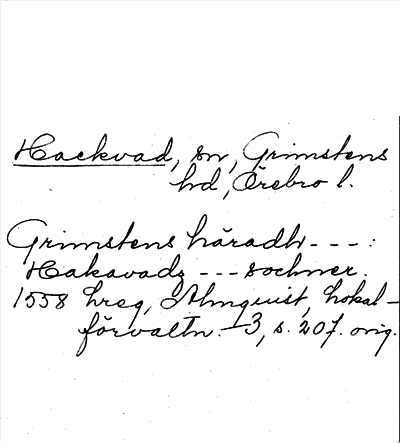 Hackvad, sn, Grimstens
hd, Örebro l.
Grimstens häradh - - - :
Hakavadz - - - sochner.
1558 hreg, Almquist, Lokal-
förvaltn. 3, s. 207. orig.